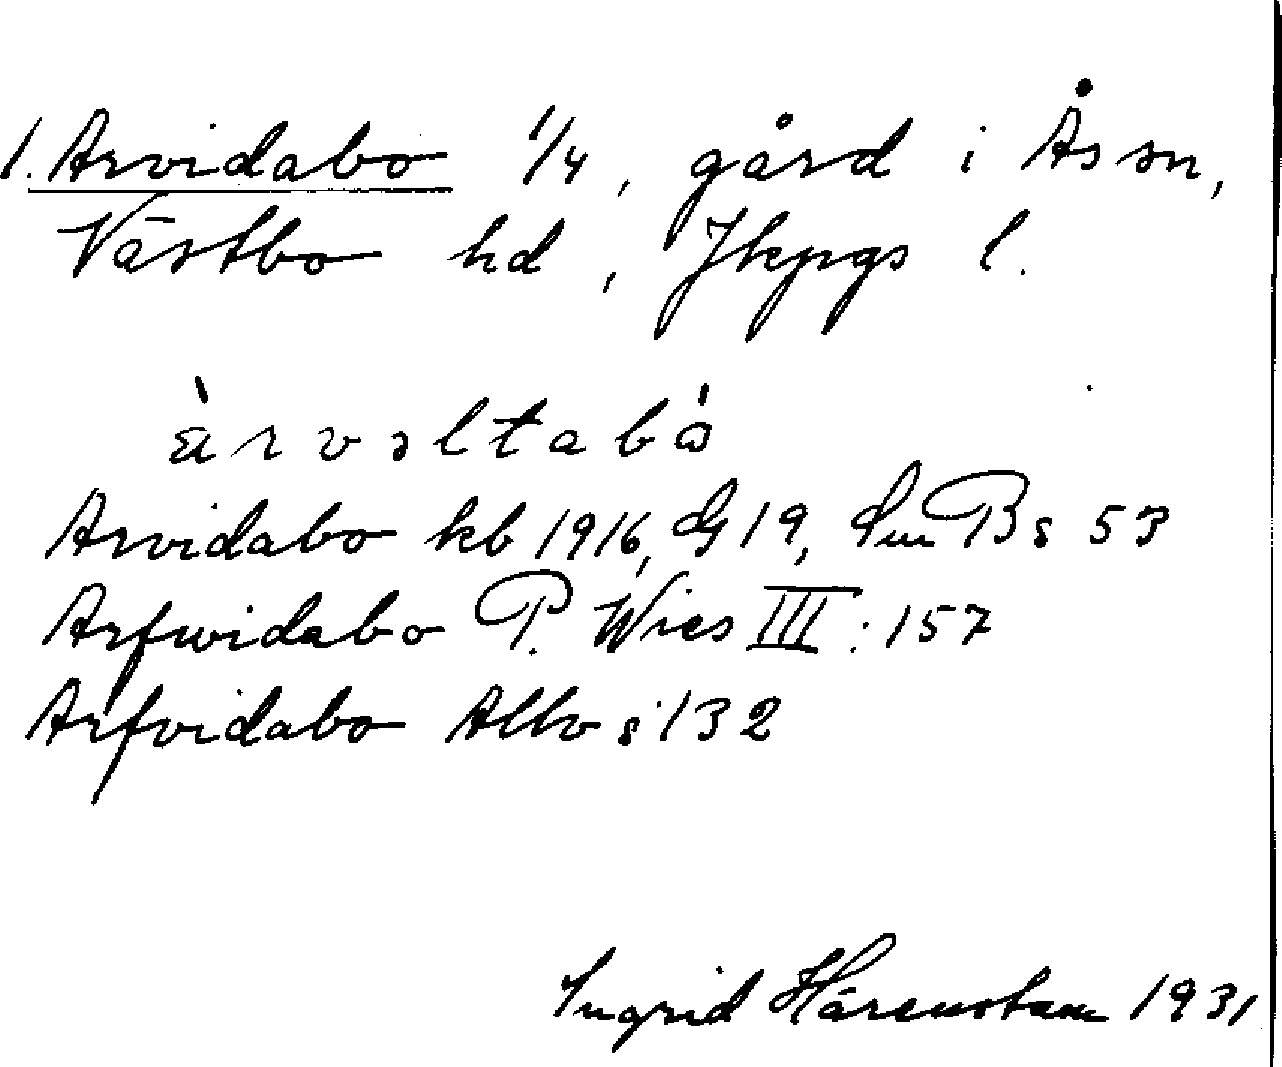 1. Arvidabo 1/4, gård i Ås sn,
Västbo hd, Jkpgs l.
àrvəltabå
Arvidabo kb 1916, G 19, Sm Bs 53
Arfwidabo P. Wies III: 157
Arfvidabo Allv s 132
Ingrid Hårenstam 1931